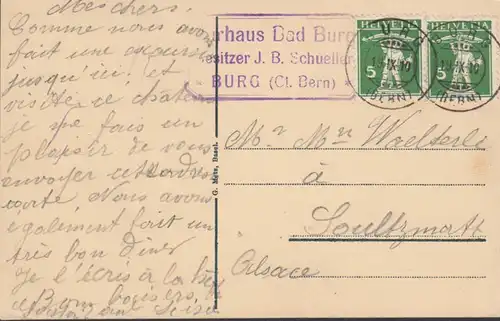 Mes chers.
Comme nous avons
fait une excursion
jusqu'ici et
visité ce château
je me fais un
plaisir de vous
envoyer cette
carte. Nous avons
également fait un
très bon dîner
Je l'écris à la
Bons baisers,
G. Metz, Basel.
rhaus Bad Burg
esitzer J. B. Schueller
BURG (Ct. Bern)
HELVETIA HELVETIA
5 5
(BERN) (BERN)
Mr Mme Waelterlé
à
Soultzmatt
Alsace